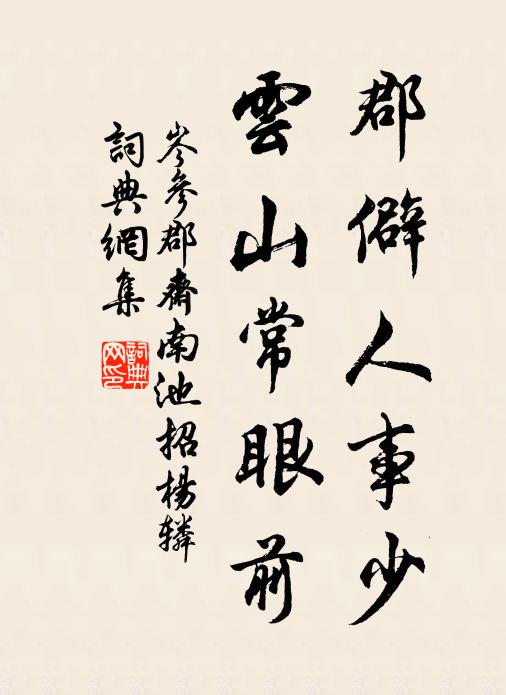 郡僻人事少
雲山常眼前
岑參郡齋南池招楊轔
詞典網集
詞典網印